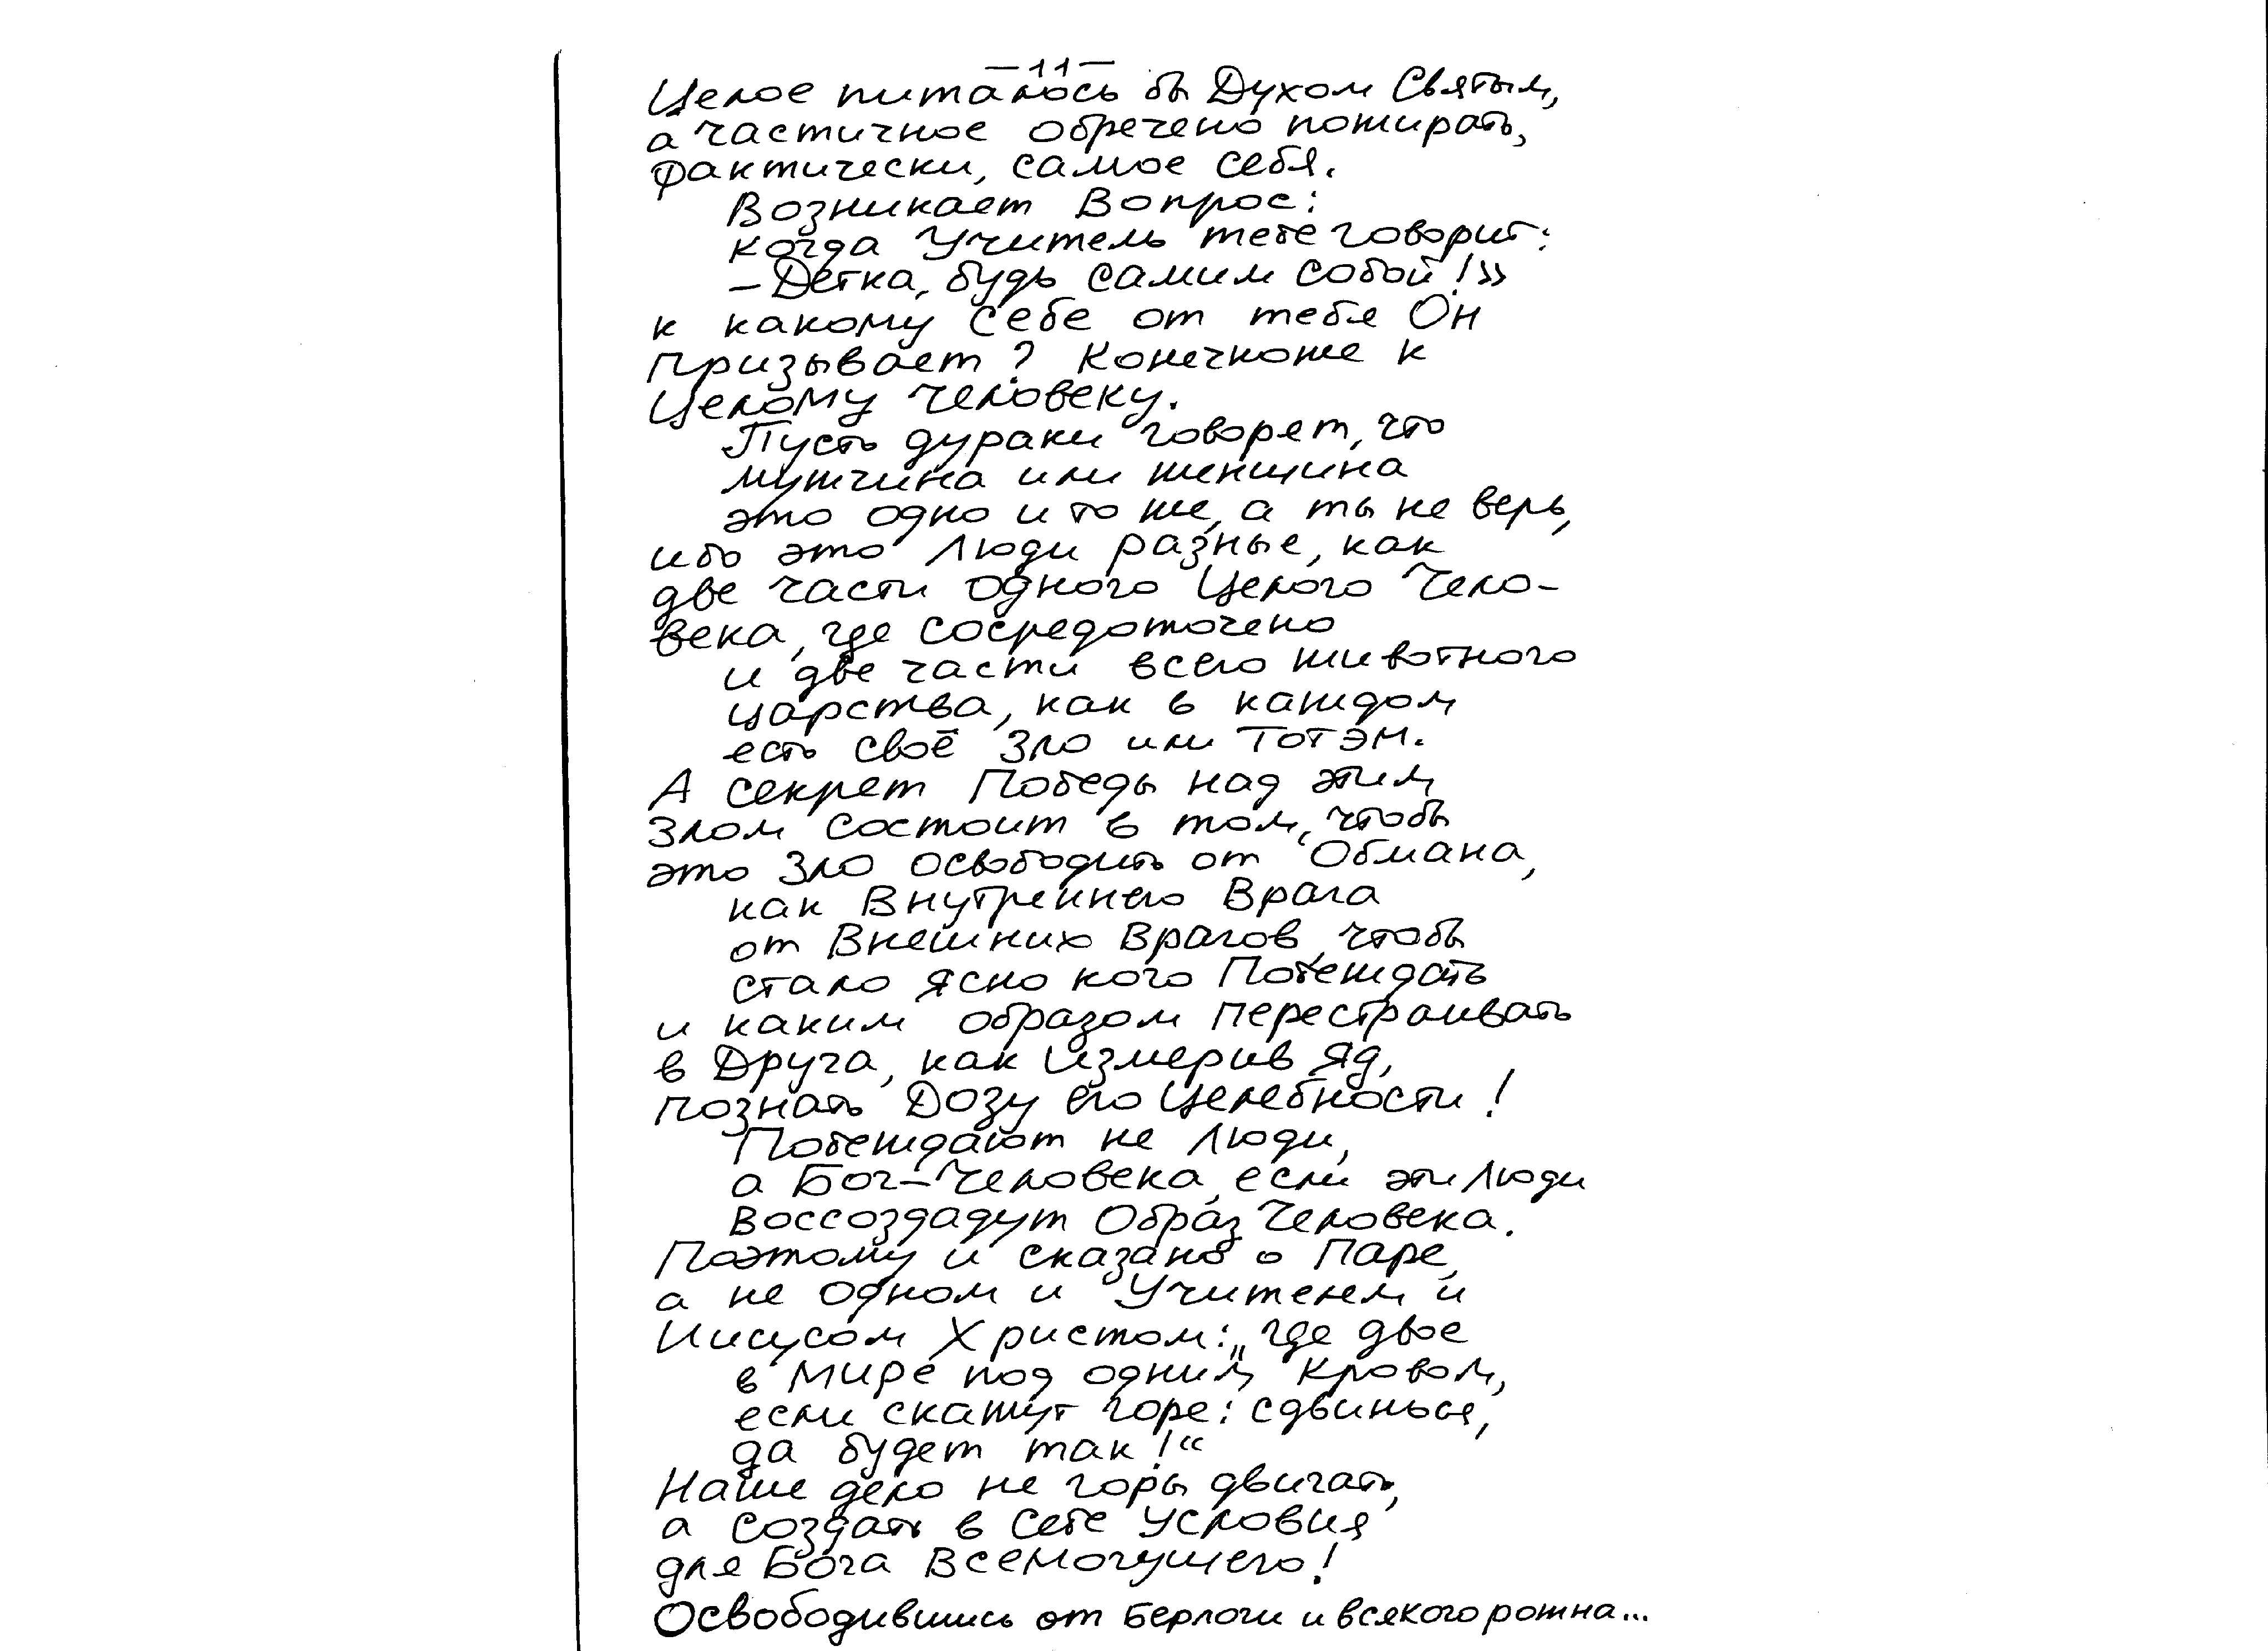 —11—
Целое питалось бы Духом Святым,
а частичное обречено пожирать,
фактически, самое себя.
Возникает Вопрос:
когда Учитель тебе говорит:
— Детка, будь самим собой!»
к какому себе от тебя Он
призывает? Конечноже к
Целому Человеку.
Пусть дураки говорят, что
мужчина или женщина
это одно и то же, а ты не верь,
ибо это Люди разные, как
две части одного Целого Чело-
века, где сосредоточено
и две части всего животного
царства, как в каждом
есть своё Зло или Тотэм.
А секрет Победы над этим
Злом состоит в том, чтобы
это Зло освободить от Обмана,
как Внутреннего Врага
от Внешних Врагов, чтобы
стало ясно кого Побеждать
и каким образом перестраивать
в Друга, как Измерив Яд,
познать Дозу его Целебности!
Побеждают не Люди,
а Бог-Человека, если эти Люди
воссоздадут Образ Человека.
Поэтому и сказано о Паре,
а не одном и Учителем и
Иисусом Христом: „где двое
в Мире под одним Кровом,
если скажут горе: сдвинься,
да будет так!“
Наше дело не горы двигать,
а создать в себе условия
для Бога Всемогущего!
Освободившись от Берлоги и всякого рожна...